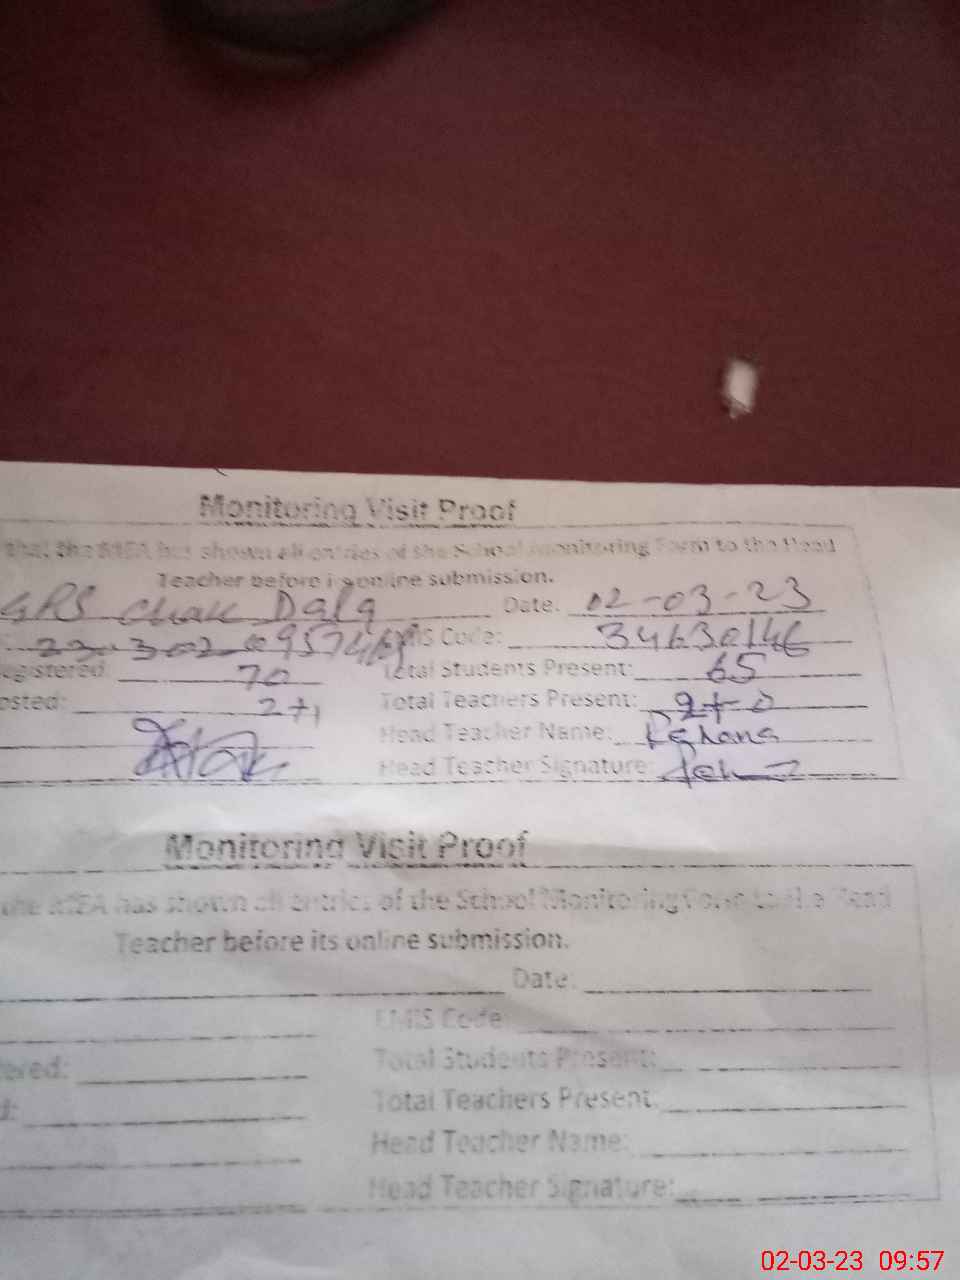 Monitoring Visit Proof
that the MEA has shown all entries of the School Monitoring Form to the Head
Teacher before its online submission.
Chak Date: 02-03-23
Code: 34630146
egistered: 70 Total Students Present: 65
osted: 2+1 Total Teachers Present: 2+0
Head Teacher Name:
Head Teacher Signature:
Monitoring Visit Proof
the MEA has shown all entries of the School Monitoring Form to the Head
Teacher before its online submission.
Date:
EMIS Code:
ered: Total Students Present:
d: Total Teachers Present:
Head Teacher Name:
Head Teacher Signature:
02-03-23 09:57